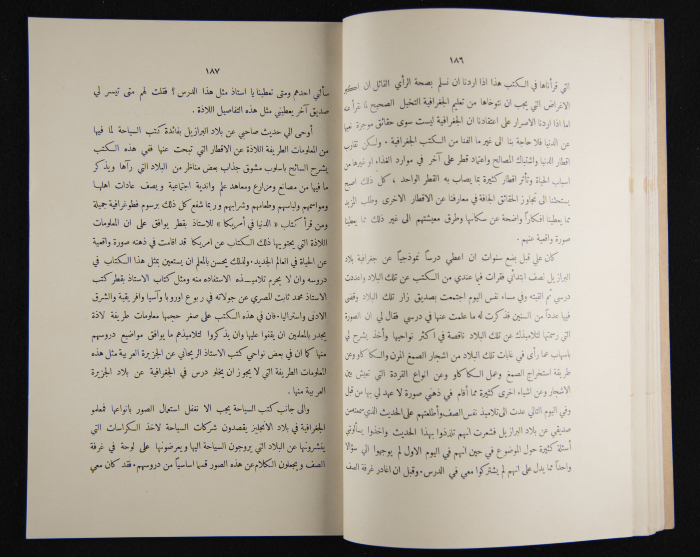 ١٨٦
التي قرأناها في الكتب هذا اذا اردنا ان نسلم بصحة الرأي القائل ان اكبر
الاغراض التي يجب ان نتوخاها من تعليم الجغرافية التخيل الصحيح لما نقرأ عنه
اما اذا اردنا الاصرار على اعتقادنا ان الجغرافية ليست سوى حقائق موجزة نعيها
عن الدنيا فلا حاجة بنا الى غير ما الفنا من الكتب الجغرافية . ولكن تقارب
اقطار الدنيا واشتباك المصالح واعتماد قطر على آخر في موارد الغذاء او غيرها من
اسباب الحياة وتأثر اقطار كثيرة بما يصاب به القطر الواحد ، كل ذلك اصبح
يستحثنا الى تجاوز الحقائق الجافة في معارفنا عن الاقطار الاخرى وطلب المزيد
مما يعطينا افكاراً واضحة عن سكانها وطرق معيشتهم الى غير ذلك مما يعطينا
صورة واقعية عنهم .
كان علي قبل بضع سنوات ان اعطي درساً نموذجياً عن جغرافية بلاد
البرازيل لصف ابتدائي فقرات فيها عندي من الكتب عن تلك البلاد واعددت
درسي ثم القيته وفي مساء نفس اليوم اجتمعت بصديق زار تلك البلاد وقضى
فيها عدداً من السنين فذكرت له ما علمت عنها في درسي فقال لي ان الصورة
التي رسمتها لتلاميذك عن تلك البلاد ناقصة في اكثر نواحيها وأخذ يشرح لي
باسهاب عما رأى في غابات تلك البلاد من اشجار الصمغ المرن والكاكاو وعن
طريقة استخراج الصمغ وعمل الكاكاو وعن انواع القردة التي تعيش بين
الاشجار وعن اشياء اخرى كثيرة مما أقام في ذهني صورة لا عهد لي بها من قبل
وفي اليوم الثاني عدت الى تلاميذ نفس الصف وأطلعتهم على الحديث الذي سمعته من
صديقي عن بلاد البرازيل فشعرت انهم تلذذوا بهذا الحديث واخذوا يسألوني
أسئلة كثيرة حول الموضوع في حين انهم في اليوم الاول لم يوجهوا الي سؤالا
واحداً مما يدل على انهم لم يشتركوا معي في الدرس . وقبل ان اغادر غرفة الصف
١٨٧
سألني احدهم ومتى تعطينا يا استاذ مثل هذا الدرس ؟ فقلت لهم متى تيسر لي
صديق آخر يعطيني مثل هذه التفاصيل اللاذة .
أوحى الي حديث صاحبي عن بلاد البرازيل بفائدة كتب السياحة لما فيها
من المعلومات الطريفة اللاذة عن الاقطار التي تبحث عنها ففي هذه الكتب
يشرح السائح باسلوب مشوق جذاب بعض مناظر من البلاد التي رآها ويذكر
ما فيها من مصانع ومزارع ومعاهد علم واندية اجتماعية ويصف عادات اهلها
ومواسمهم ولباسهم وطعامهم وشرابهم وربما شفع كل ذلك برسوم فطوغرافية جميلة
ومن قرأ كتاب « الدنيا في أمريكا » للاستاذ بقطر يوافق على ان المعلومات
اللاذة التي يحتويها ذلك الكتاب عن امريكا قد اقامت في ذهنه صورة واقعية
عن الحياة في العالم الجديد . ولذلك يحسن بالمعلم ان يستعين بمثل هذا الكتاب في
دروسه وان لا يحرم تلاميذه الاستفادة منه ومثل كتاب الاستاذ بقطر كتب
الاستاذ محمد ثابت المصري عن جولاته في ربوع اوروبا وآسيا وافريقية والشرق
الادنى واستراليا . فان في هذه الكتب على صغر حجمها معلومات طريفة لاذة
يجدر بالمعلمين ان يقفوا عليها وان يذكروا لتلاميذهم ما يوافق مواضيع دروسهم
منها كما ان في بعض نواحي كتب الاستاذ الريحاني عن الجزيرة العربية مثل هذه
المعلومات الطريفة التي لا يجوز ان يخلو درس في الجغرافية عن بلاد الجزيرة
العربية منها .
والى جانب كتب السياحة يجب الا نغفل استعمال الصور بانواعها فمعلمو
الجغرافية في بلاد الانجليز يقصدون شركات السياحة لاخذ الكراسات التي
ينشرونها عن البلاد التي يروجون السياحة اليها ويعرضونها على لوحة في غرفة
الصف ويجعلون الكلام عن هذه الصور قسما اساسياً من دروسهم . فقد كان معي